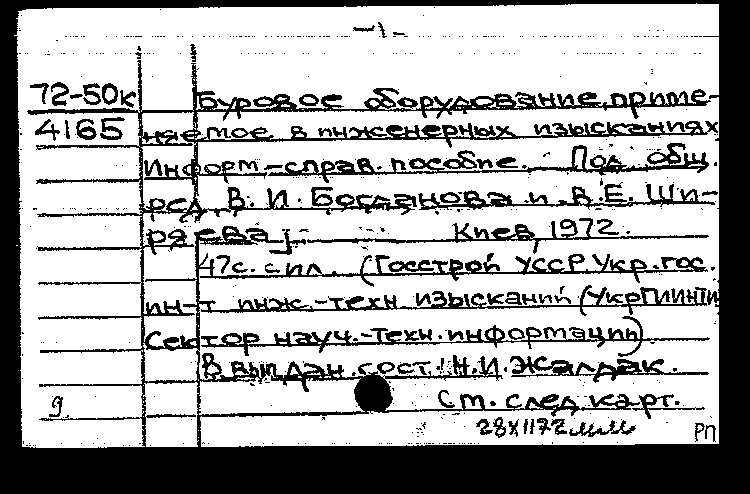 -1-
72-50к Буровое оборудование, приме-
4165 няемое в инженерных изысканиях
Информ.-справ. пособие. Под общ.
ред. В. И. Богданова и В. Е. Ши-
ряева. Киев, 1972.
47с. с ил. (Госстрой УССР. Укр. гос.
ин-т инж.-техн изысканий (УкрГИИНТИЗ
Сектор науч.-техн. информации)
В вып. дан. сост.: Н. И. Жалдак.
9 См. след карт.
28XII72
РП